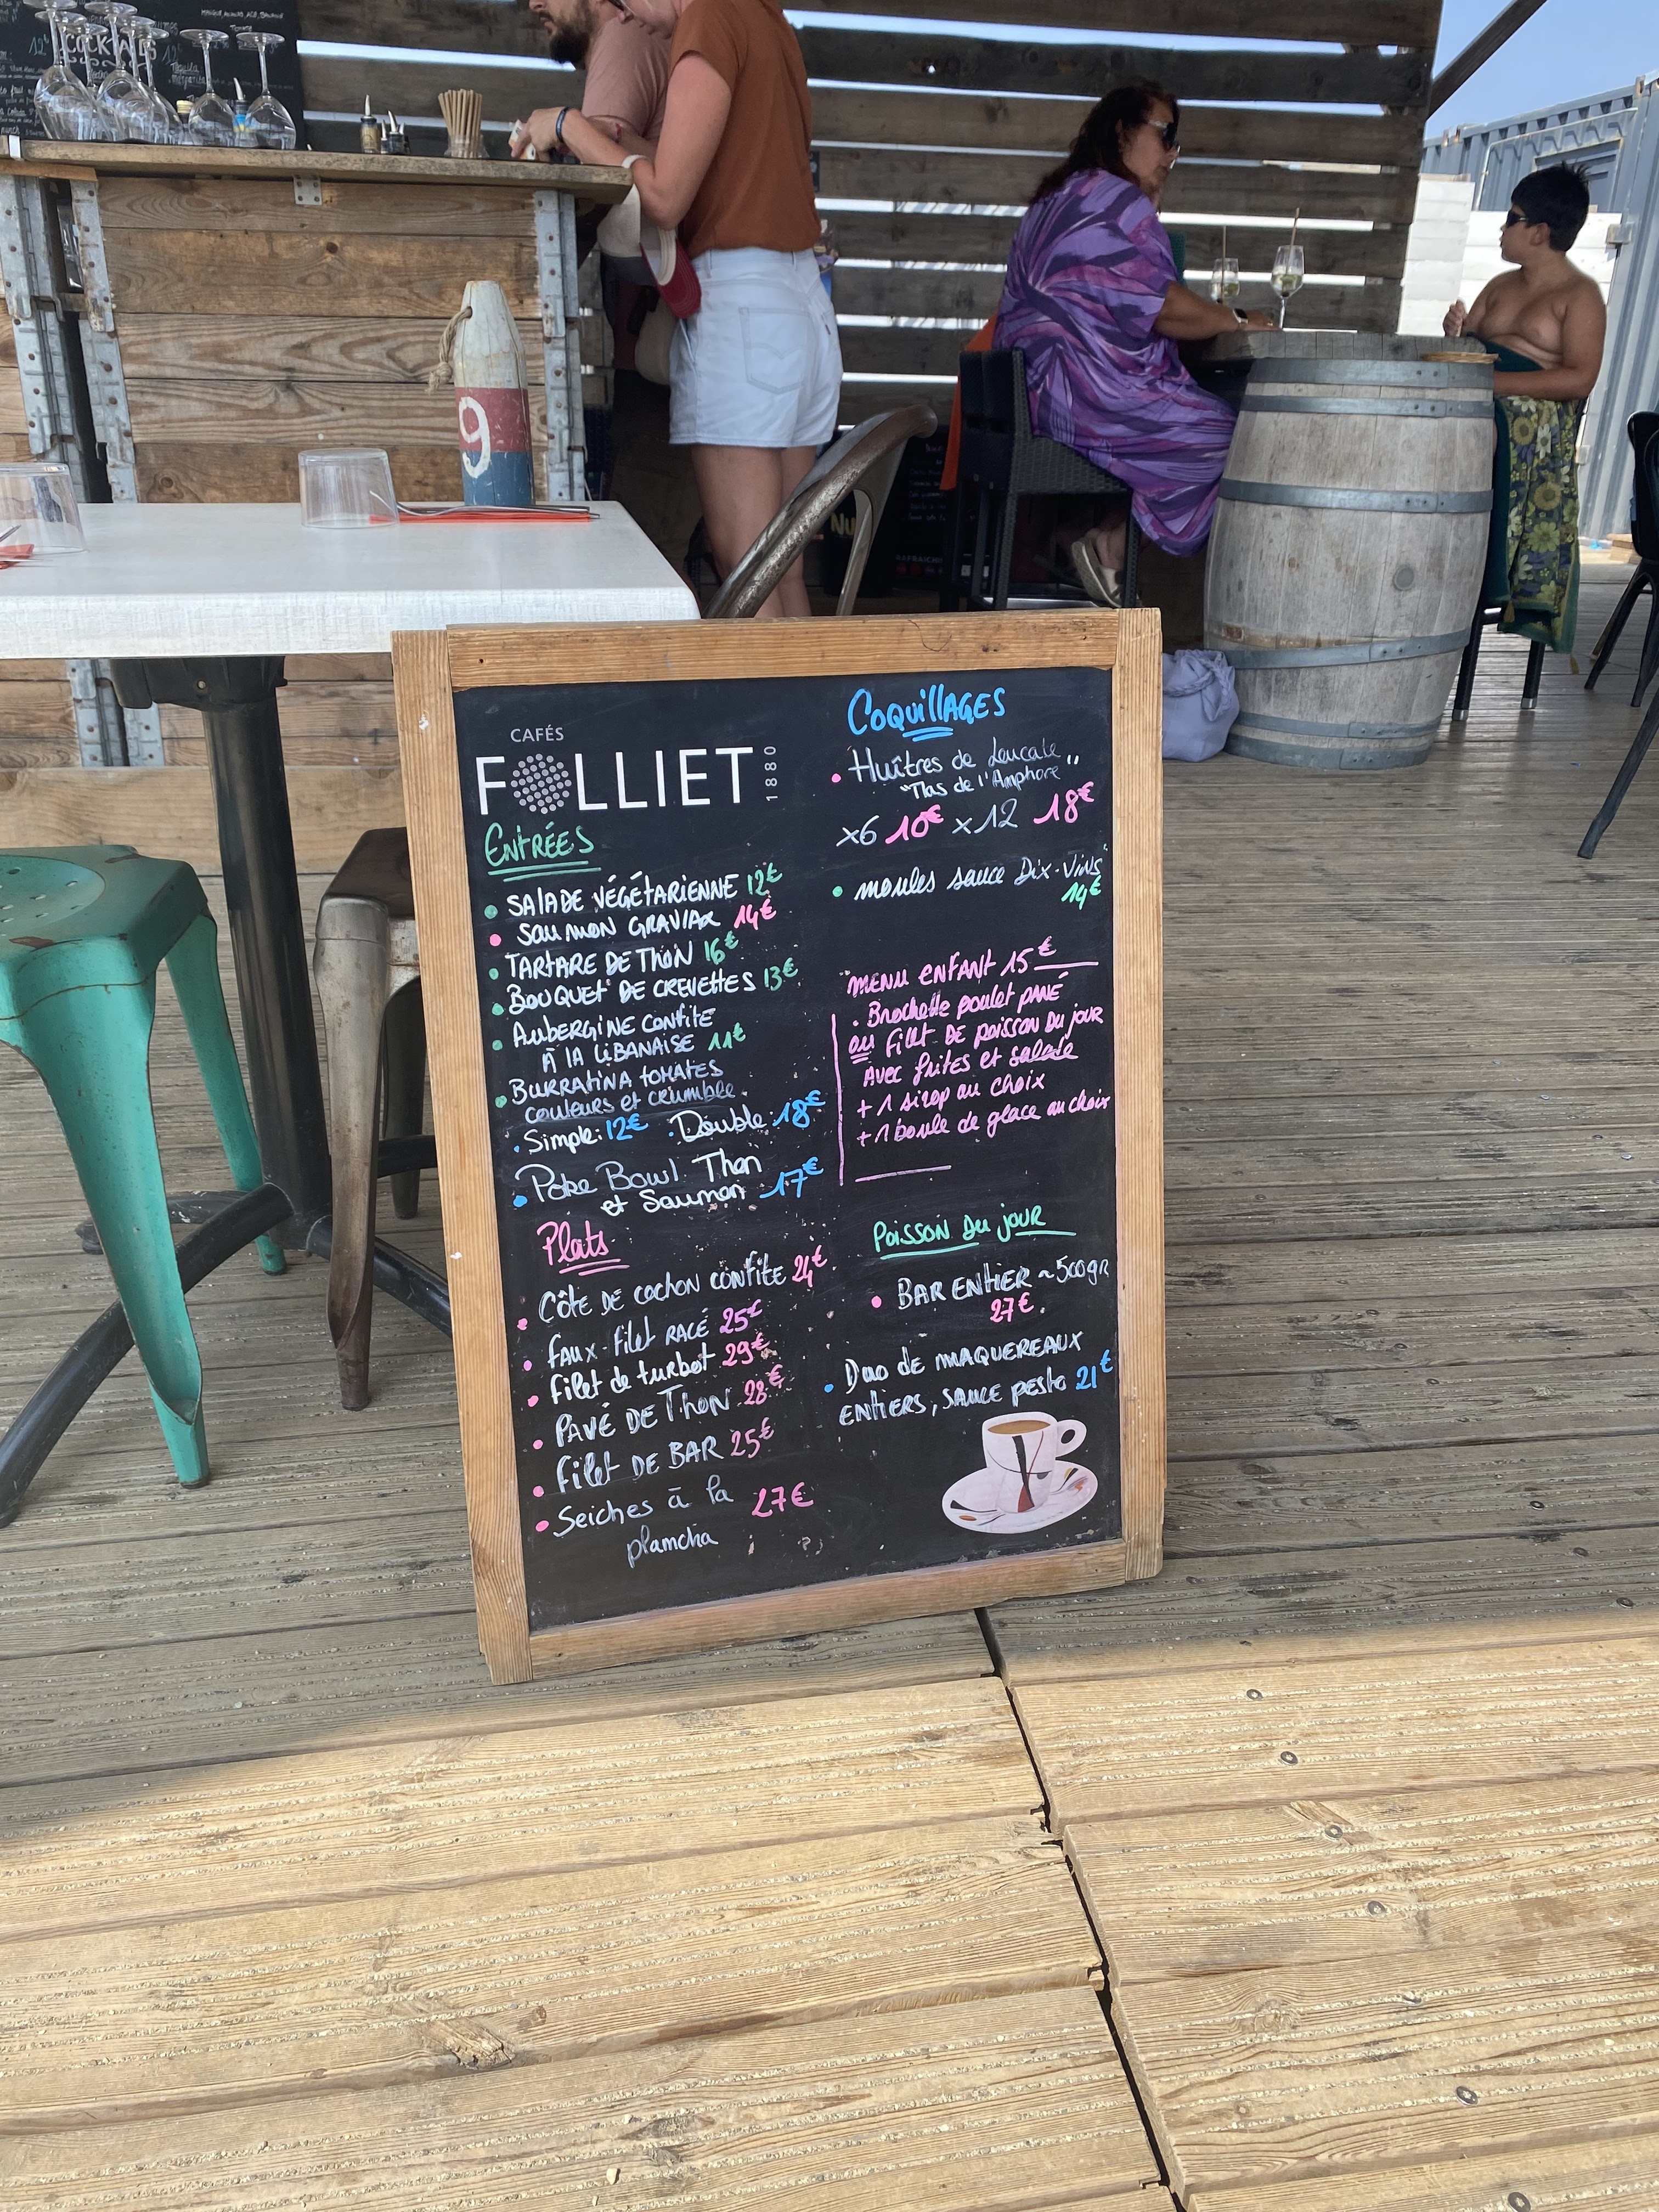 COCKTAILS
9
CAFÉS
FOLLIET
1880
ENTRÉES
SALADE VÉGÉTARIENNE 12€
SAUMON GRAVLAX 14€
TARTARE DE THON 16€
BOUQUET DE CREVETTES 13€
AUBERGINE CONFITE
À LA LIBANAISE 11€
BURRATINA TOMATES
COULEURS et CRUMBLE.
Simple: 12€ . Double: 18€
Poke Bowl Thon
et Saumon 17€
Plats
CÔTE DE COCHON CONFITE 24€
FAUX-FILET RACÉ 25€
FILET de TURBOT 29€
PAVÉ DE THON 28€
FILET DE BAR 25€
Seiches à la 27€
plancha
COQUILLAGES
Huîtres de Leucate
"Mas de l'Amphore"
x6 10€ x12 18€
moules sauce Dix-Vins"
14€
MENU ENFANT 15€
. Brochette poulet PANÉ
ou FILET DE POISSON DU JOUR
AVEC frites et salade
+ 1 sirop au choix
+ 1 boule de glace au choix
POISSON DU JOUR
BAR ENTIER ~500gr
27€.
Duo de MAQUEREAUX
ENTIERS, SAUCE pesto 21€